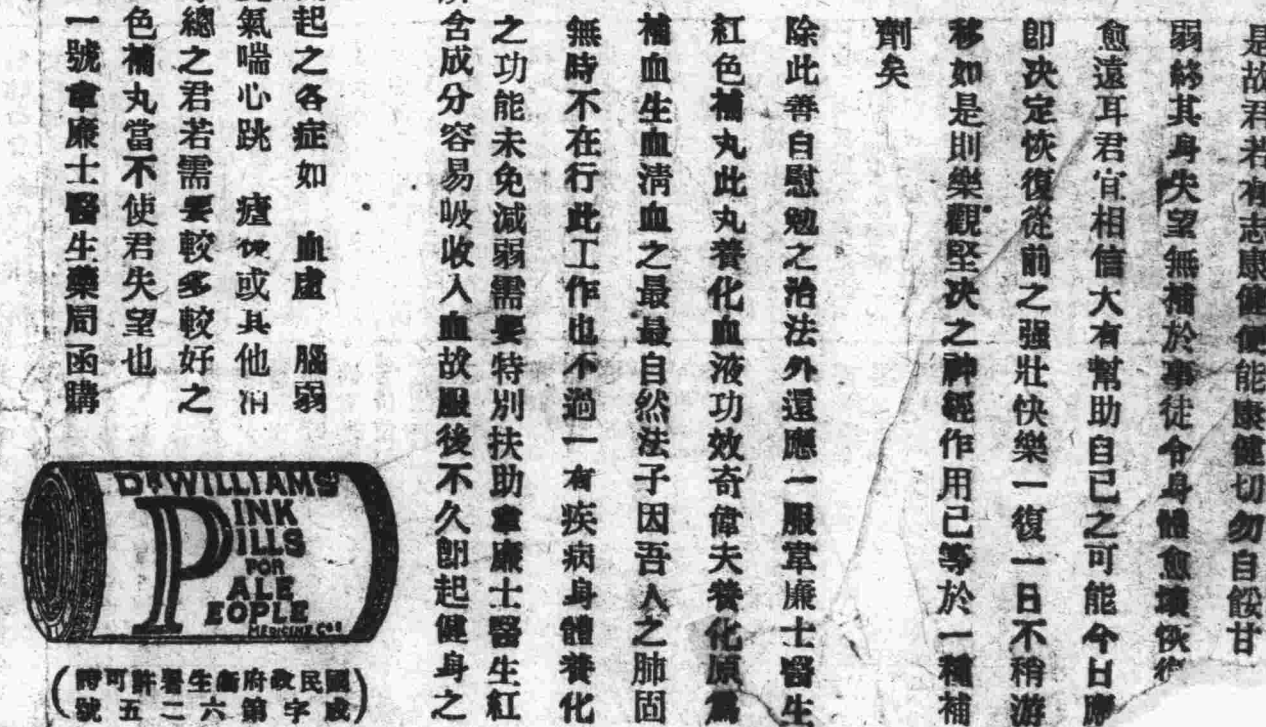 是故君若有志康健便能康健切勿自餒甘
弱終其身失望無補於事徒令身體愈壞恢復
愈遠耳君宜相信大有幫助自己之可能今日應
卽决定恢復從前之强壯快樂一復一日不稍游
移如是則樂觀堅决之神經作用已等於一種補
劑矣
除此善自慰勉之治法外還應一服韋廉士醫生
紅色補丸此丸養化血液功效奇偉夫養化原爲
補血生血淸血之最最自然法子因吾人之肺固
無時不在行此工作也不過一有疾病身體養化
之功能未免減弱需要特別扶助韋廉士醫生紅
含成分容易吸收入血故服後不久卽起健身之
起之各症如 血虛 腦弱
氣喘心跳 瘧後或其他消
總之君若需要較多較好之
色補丸當不使君失望也
一號韋廉士醫生藥局函購
DR WILLIAMS
PINK
PILLS
FOR
PALE
PEOPLE
MEDICINE CO
(國民政府衞生署許可證
成字第六二五號)